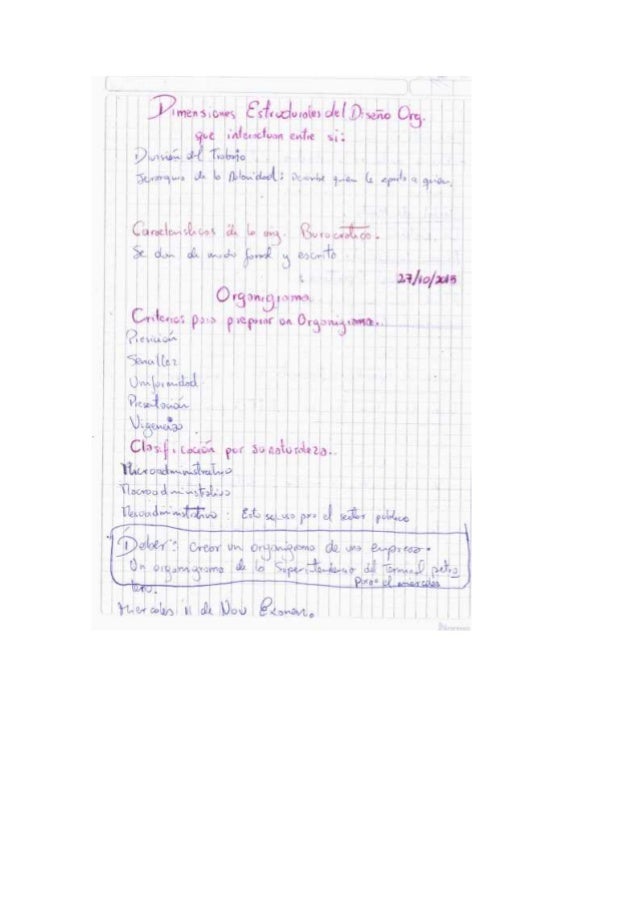 Dimensiones Estructurales del Diseño Org.
que interactuan entre si:
División del Trabajo
Jerarquia de la Autoridad: Describe quien le reporta a quien.
Caracteristicas de la org. Burocratica.
Se dan de modo formal y escrito
27/10/2015
Organigrama
Criterios para preparar un Organigrama.
Precisión
Sencillez
Uniformidad
Presentación
Vigencia
Clasificación por su naturaleza.
Microadministrativo
Macroadministrativo
Mesoadministrativo: Esto se uso para el sector público
Deber: Crear un organigrama de una empresa.
Un organigrama de la Superintendencia del Terminal petro
lero. para el miercoles
Miercoles 11 de Nov Examen.